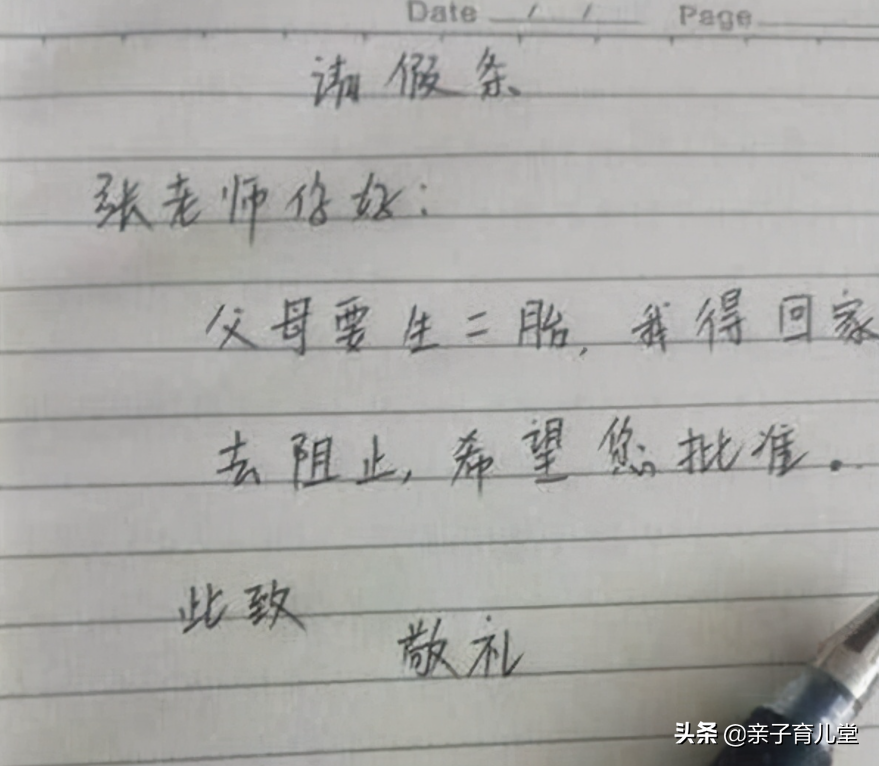 Date / / Page
请假条
张老师你好:
父母要生二胎,我得回家
去阻止,希望您批准。
此致
敬礼
头条 @亲子育儿堂